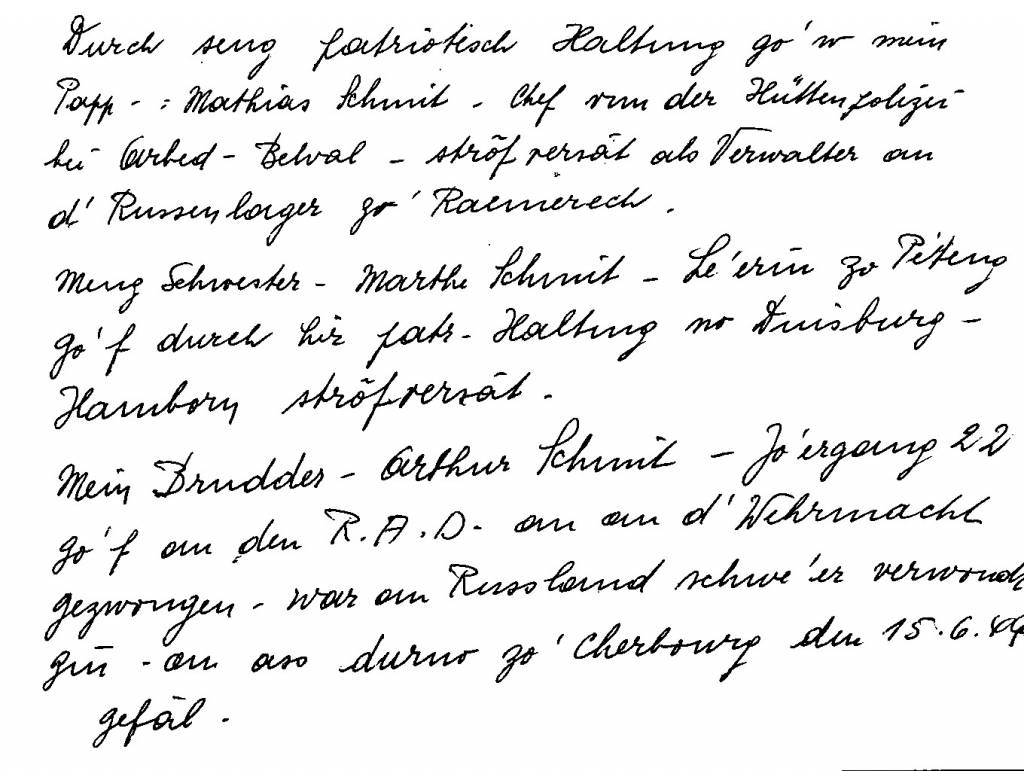 Durch seng patriotisch Haltung go'w mein
Papp - : Mathias Schmit - Chef vun der Hüttenpolizei
bei Arbed - Belval - ströfversät als Verwalter an
d' Russenlager zo' Raemerech.
Meng Schwester - Marthe Schmit - Le'erin zo Péteng
go'f durch hir patr. Haltung no Duisburg -
Hamborn ströfversät.
Mein Brudder - Arthur Schmit - Jo'ergang 22
go'f an den R.A.D. an an d' Wehrmacht
gezwongen - war an Russland schwe'er verwond
gin - an ass durno zo' Cherbourg den 15.6.44
gefäl.